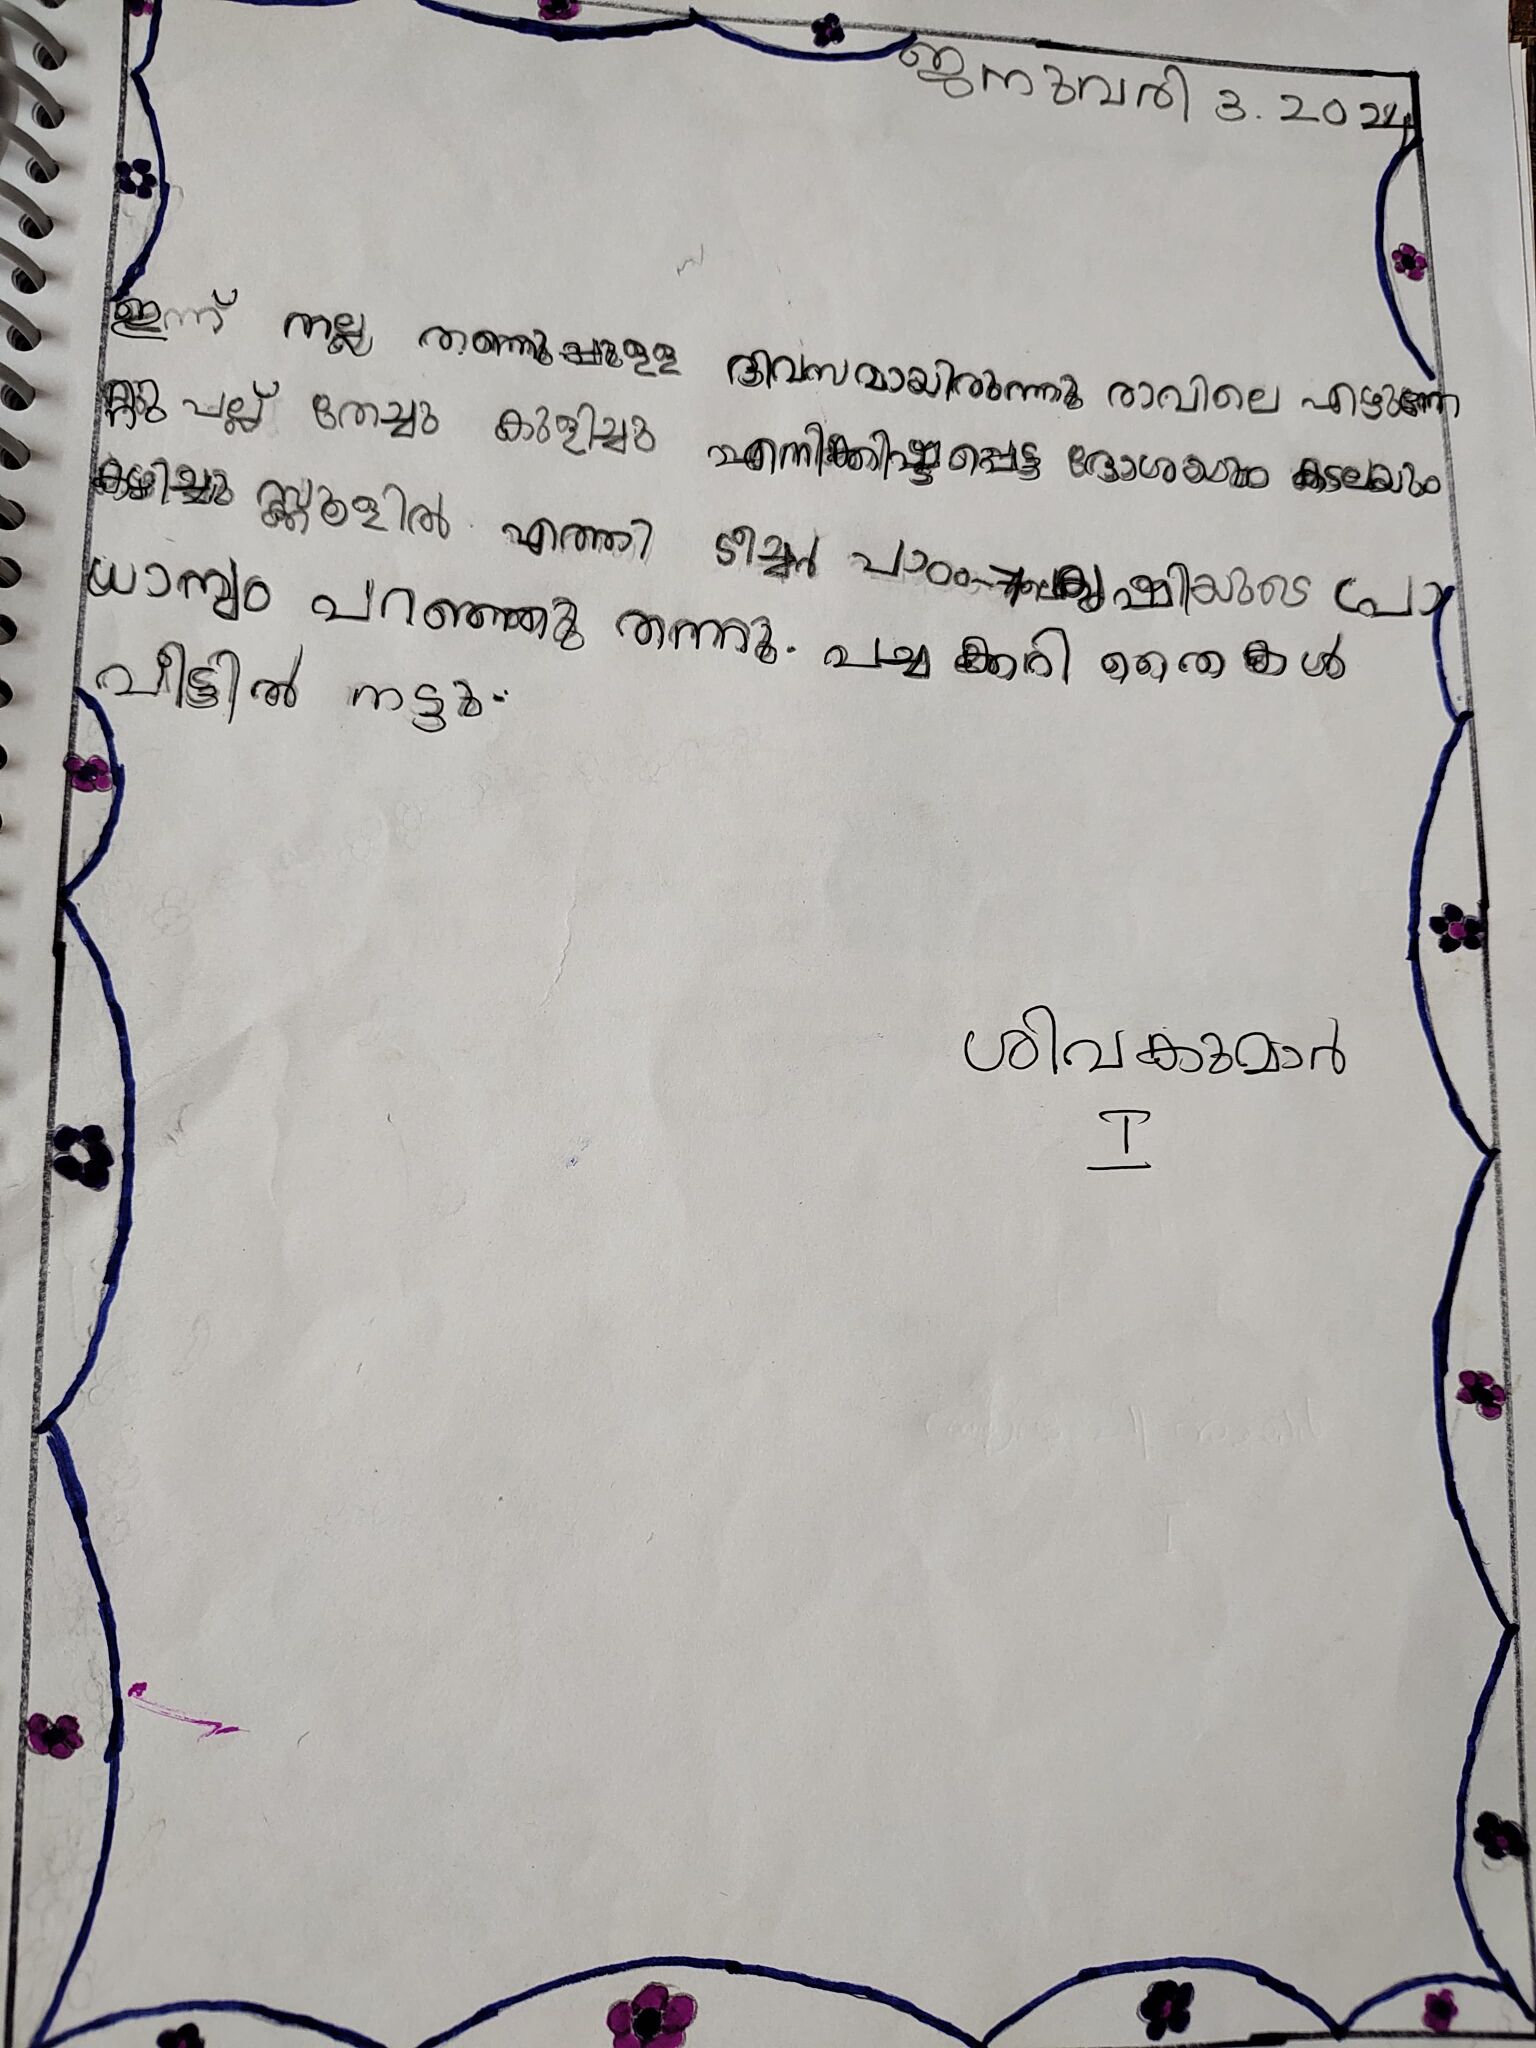 ജനുവരി 3. 2024
ഇന്ന് നല്ല തണുപ്പുള്ള ദിവസമായിരുന്നു രാവിലെ എഴുന്നേ
റ്റു പല്ല് തേച്ചു കുളിച്ചു എനിക്കിഷ്ടപ്പെട്ട ദോശയും കടലയും
കഴിച്ചു സ്കൂളിൽ എത്തി ടീച്ചർ പാഠം കൃഷിയുടെ പ്രാ
ധാന്യം പറഞ്ഞു തന്നു. പച്ചക്കറി തൈകൾ
വീട്ടിൽ നട്ടു.
ശിവകുമാർ
I